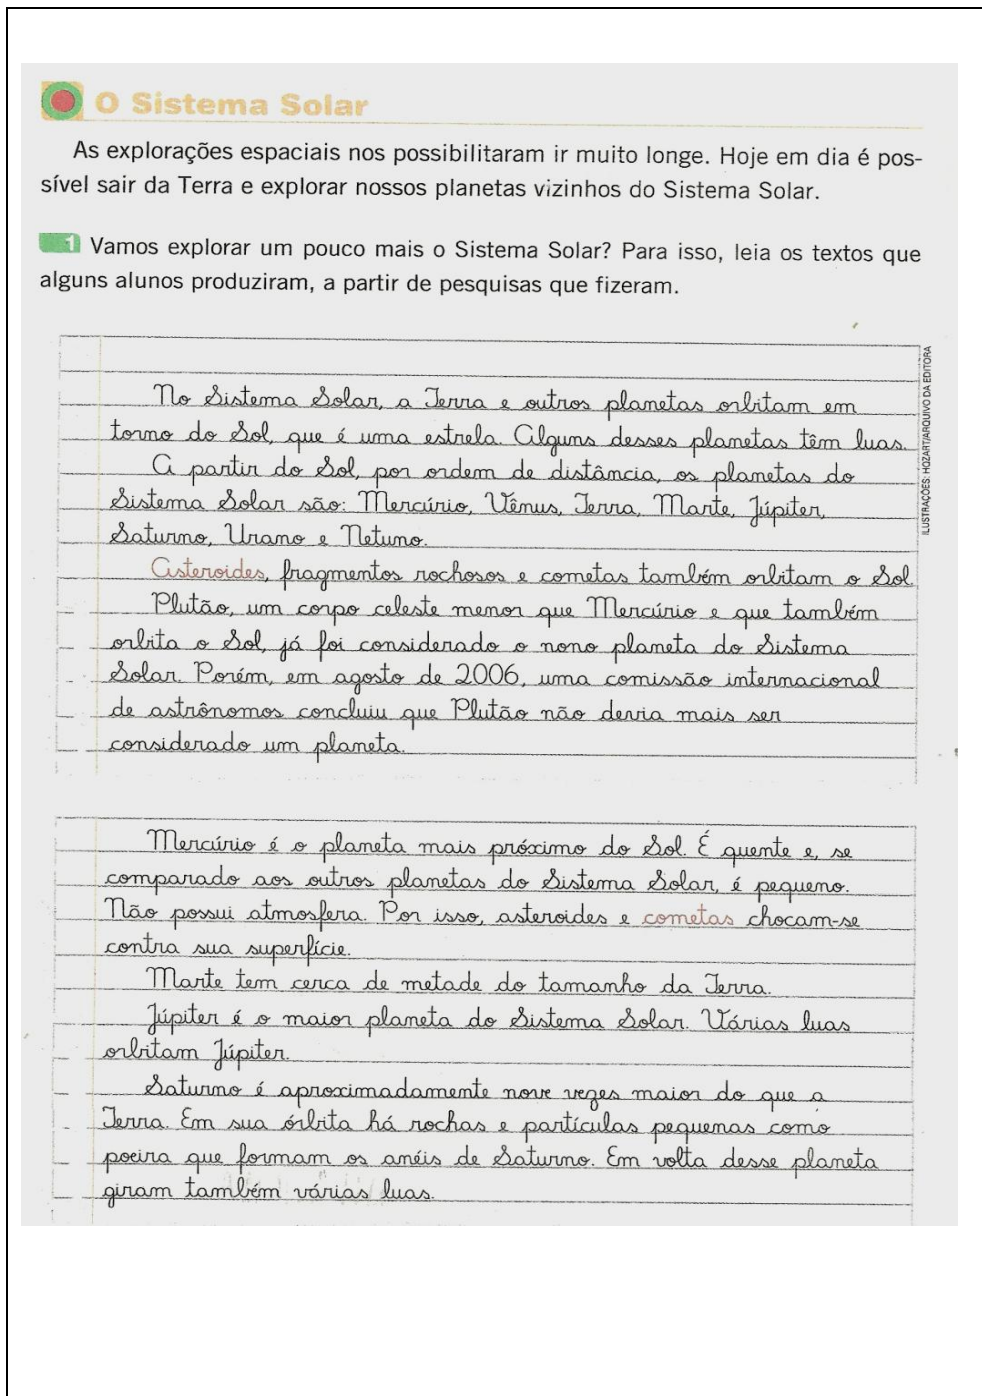 O Sistema Solar
As explorações espaciais nos possibilitaram ir muito longe. Hoje em dia é pos-
sível sair da Terra e explorar nossos planetas vizinhos do Sistema Solar.
1 Vamos explorar um pouco mais o Sistema Solar? Para isso, leia os textos que
alguns alunos produziram, a partir de pesquisas que fizeram.
ILUSTRAÇÕES: HOZART/ARQUIVO DA EDITORA
No Sistema Solar, a Terra e outros planetas orbitam em
torno do Sol, que é uma estrela. Alguns desses planetas têm luas.
A partir do Sol, por ordem de distância, os planetas do
Sistema Solar são: Mercúrio, Vênus, Terra, Marte, Júpiter,
Saturno, Urano e Netuno.
Asteroides, fragmentos rochosos e cometas também orbitam o Sol.
Plutão, um corpo celeste menor que Mercúrio e que também
orbita o Sol, já foi considerado o nono planeta do Sistema
Solar. Porém, em agosto de 2006, uma comissão internacional
de astrônomos concluiu que Plutão não devia mais ser
considerado um planeta.
Mercúrio é o planeta mais próximo do Sol. É quente e, se
comparado aos outros planetas do Sistema Solar, é pequeno.
Não possui atmosfera. Por isso, asteroides e cometas chocam-se
contra sua superfície.
Marte tem cerca de metade do tamanho da Terra.
Júpiter é o maior planeta do Sistema Solar. Várias luas
orbitam Júpiter.
Saturno é aproximadamente nove vezes maior do que a
Terra. Em sua órbita há rochas e partículas pequenas como
poeira que formam os anéis de Saturno. Em volta desse planeta
giram também várias luas.